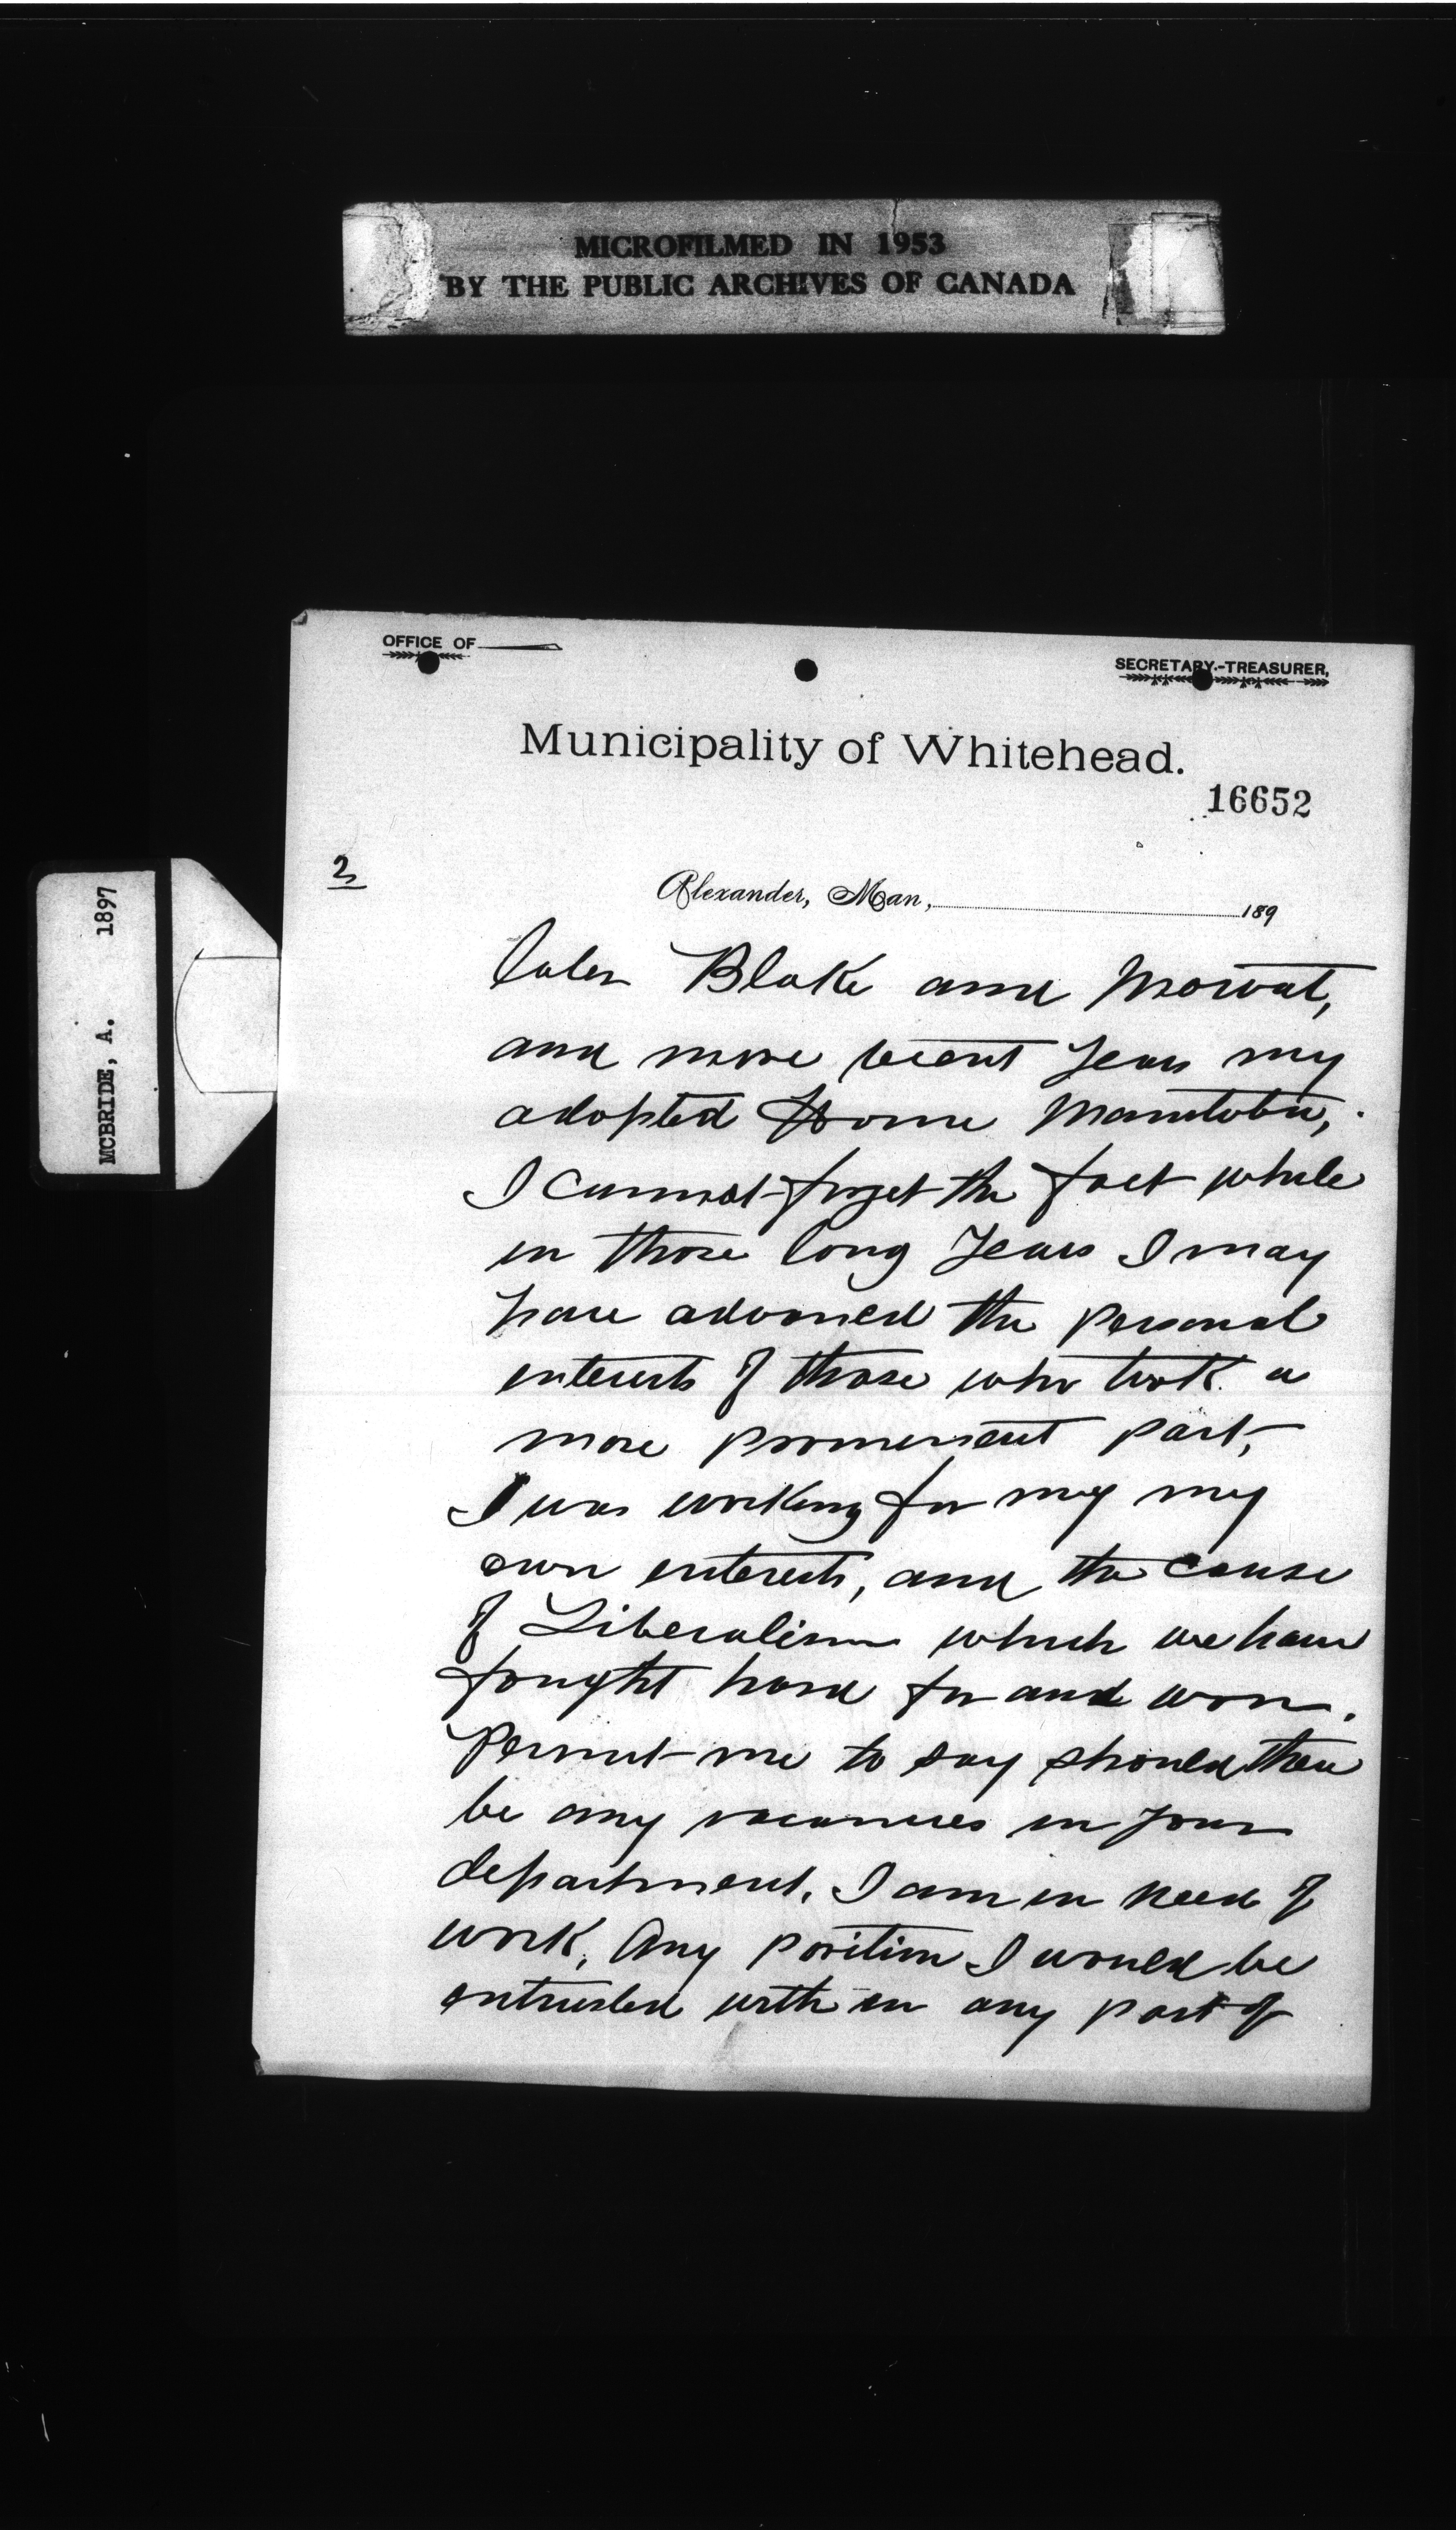 MICROFILMED IN 1953
BY THE PUBLIC ARCHIVES OF CANADA
MCBRIDE, A. 1897
OFFICE OF
SECRETARY.-TREASURER,
Municipality of Whitehead.
16652
2
Alexander, Man, 189
later Blake and Mowat,
and more recent years my
adopted Home Manitoba,
I cannot forget the fact while
in those long years I may
have advanced the personal
interests of those who took a
more prominent part,
I was working for my my
own interests, and the cause
of Liberalism which we have
fought hard for and won.
Permit me to say should there
be any vacancies in your
department, I am in need of
work, Any position I would be
entrusted with in any part of